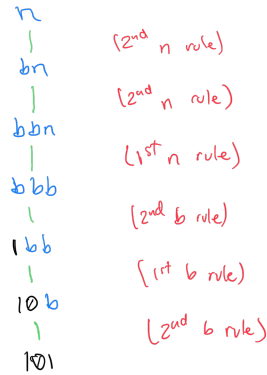 n
(2nd n rule)
bn
(2nd n rule)
bbn
(1st n rule)
bbb
(2nd b rule)
1bb
(1st b rule)
10b
(2nd b rule)
101